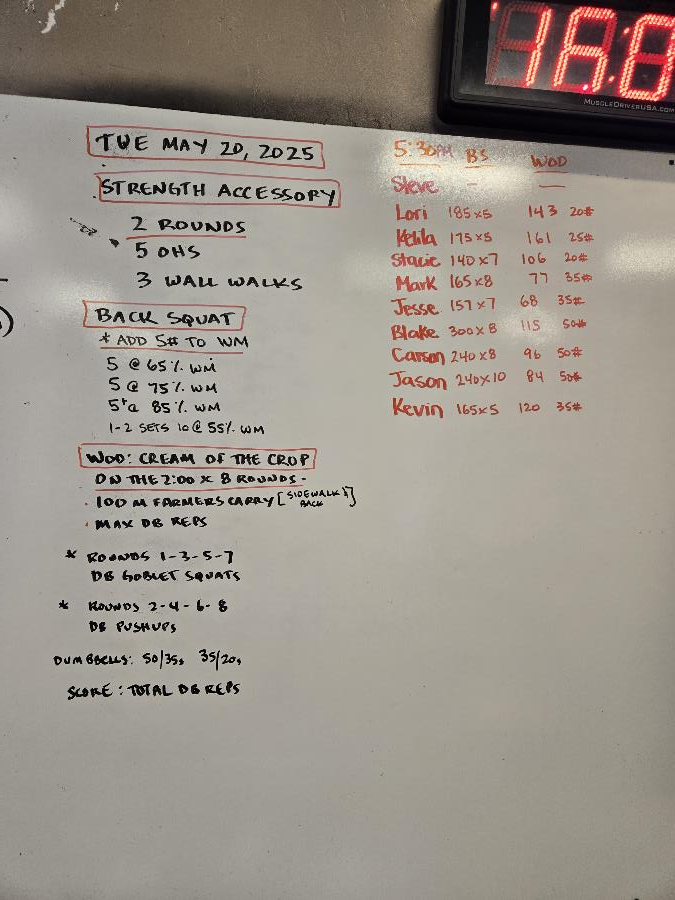 TUE MAY 20, 2025
STRENGTH ACCESSORY
2 ROUNDS
5 OHS
3 WALL WALKS
BACK SQUAT
* ADD 5# TO WM
5 @ 65% WM
5 @ 75% WM
5+@ 85% WM
1-2 SETS 10 @ 55% WM
WOD: CREAM OF THE CROP
ON THE 2:00 X 8 ROUNDS -
· 100 M FARMERS CARRY [SIDEWALK & BACK]
· MAX DB REPS
* ROUNDS 1-3-5-7
DB GOBLET SQUATS
* ROUNDS 2-4-6-8
DB PUSHUPS
DUMBBELLS: 50/35s 35/20s
SCORE: TOTAL DB REPS
5:30AM BS WOD
Steve — —
Lori 185x5 143 20#
175x5 161 25#
Stacie 140x7 106 20#
Mark 165x8 77 35#
Jesse 157x7 68 35#
Blake 300x8 115 50#
Carson 240x8 96 50#
Jason 240x10 84 50#
Kevin 165x5 120 35#
MUSCLEDRIVERUSA.COM